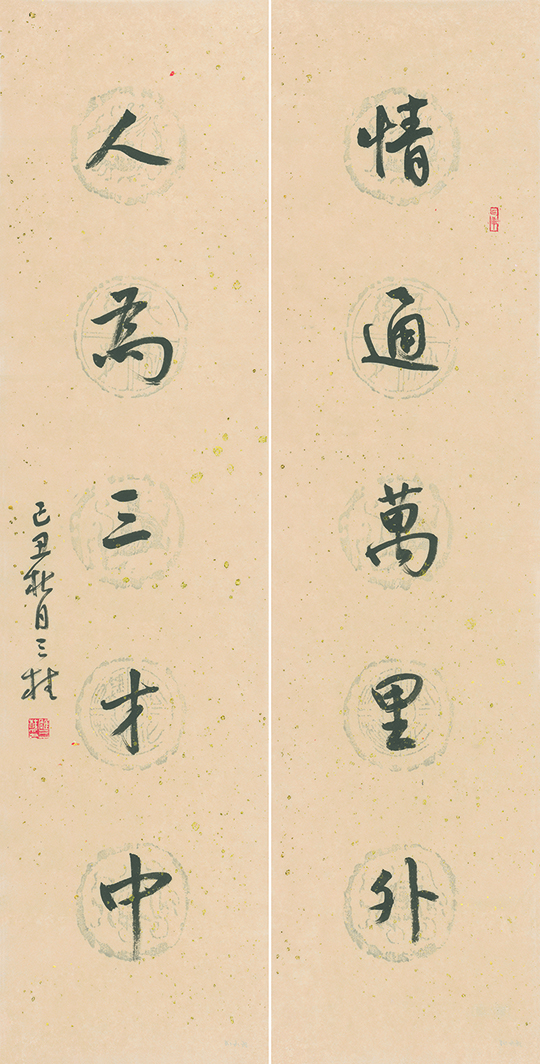 情通萬里外
人為三才中
己丑秋月三桂